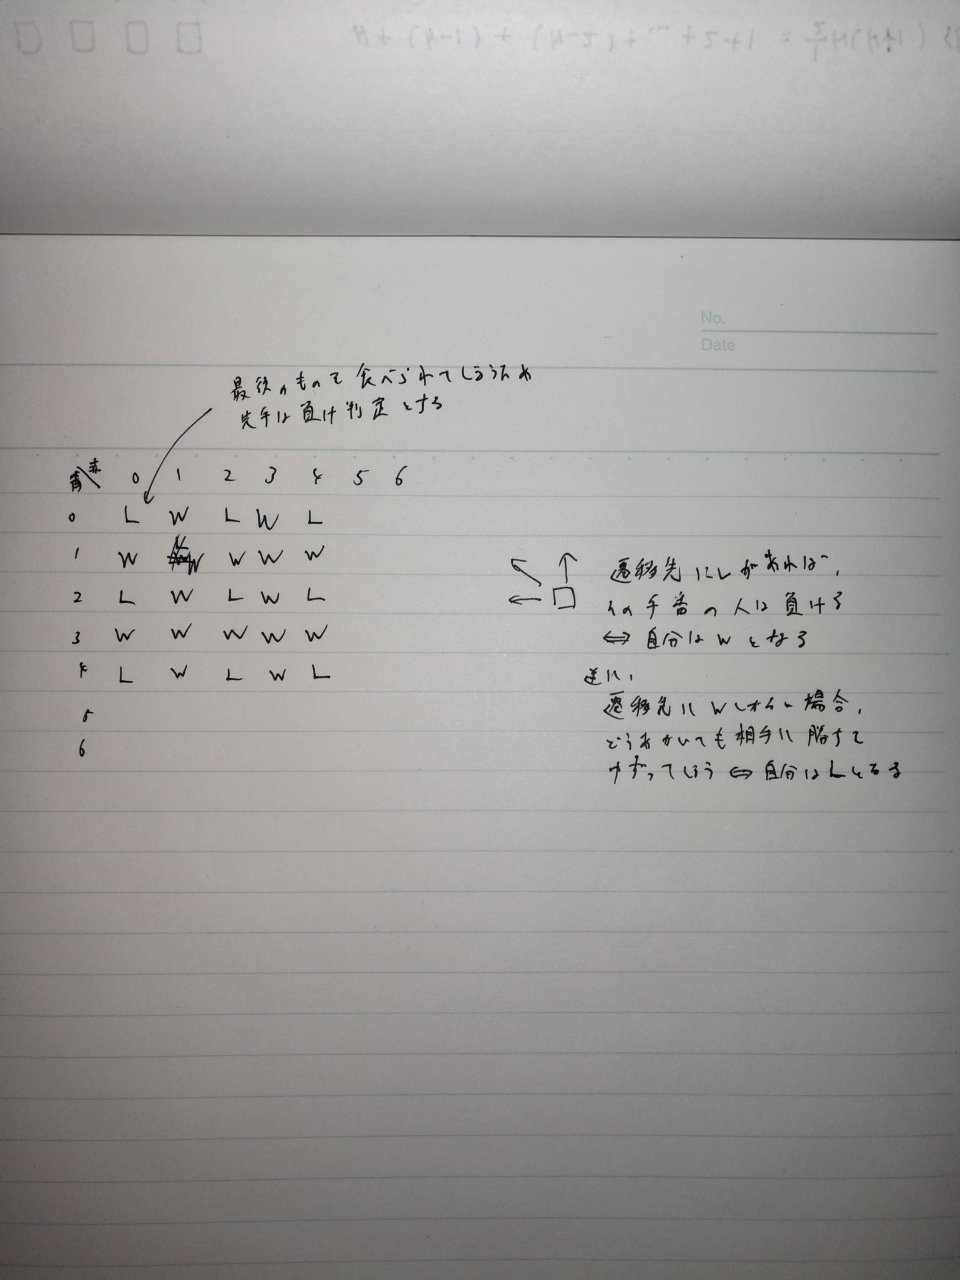 No.
Date
最後のものを食べられてしまうため
先手は負け判定とする
青\赤 0 1 2 3 4 5 6
0 L W L W L
1 W W W W W
2 L W L W L
3 W W W W W
4 L W L W L
5
6
遷移先にLがあれば、
その手番の人は負ける
⇔ 自分はWとなる
逆に、
遷移先にWしかない場合、
どうあがいても相手に勝ちを
ゆずってしまう ⇔ 自分はLとなる